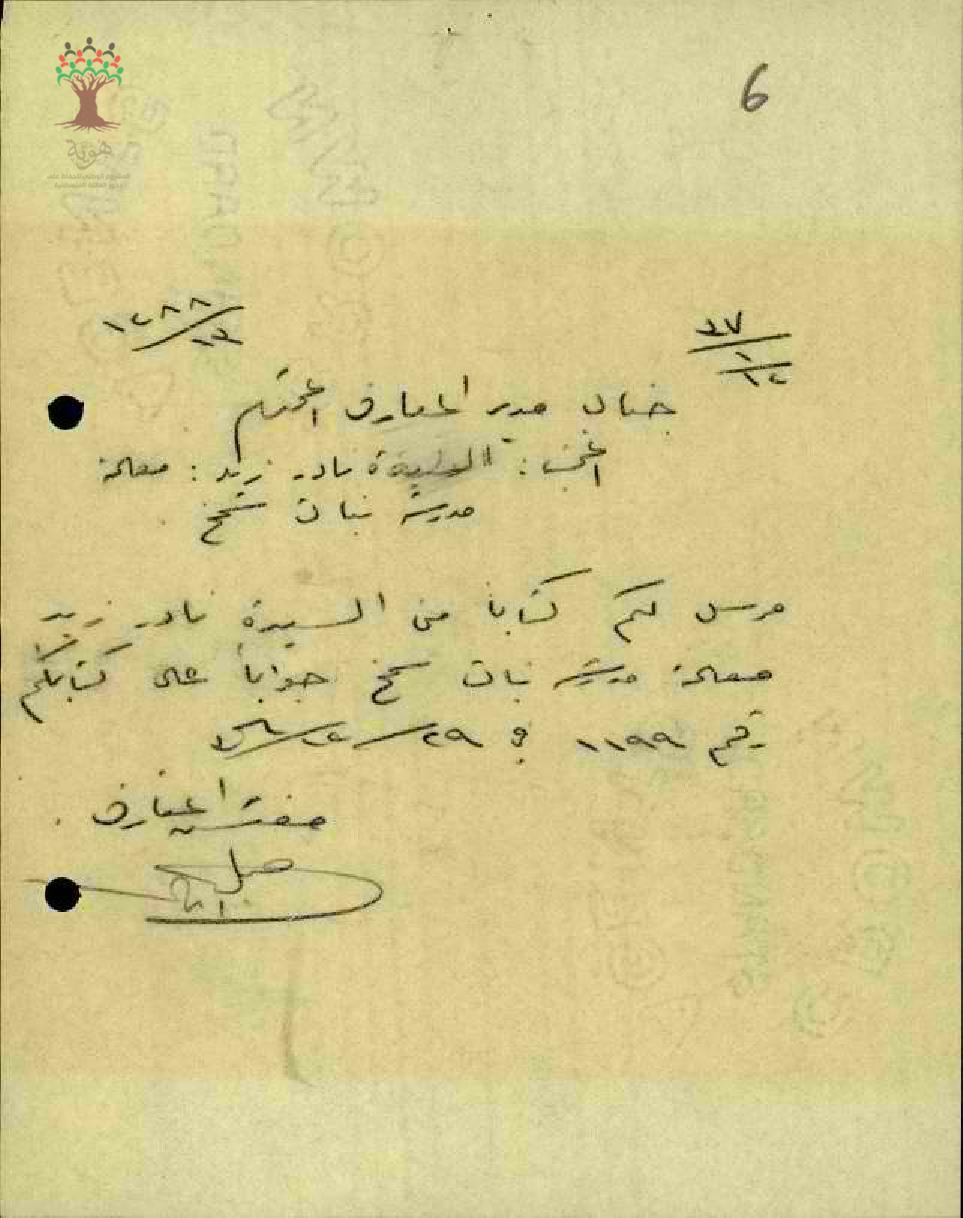 6
هوية
١٢٨٨/١٣
٣٧/١/١٢
جناب مدير المعارف المحترم
الموضوع: السيدة نادر زيد: معلمة
مدرسة بنات سمخ
مرسل لكم كتاباً من السيدة نادر زيد
معلمة مدرسة بنات سمخ جواباً على كتابكم
رقم ١١٩٩ في ٢٩/١٢/٣٦
مفتش المعارف